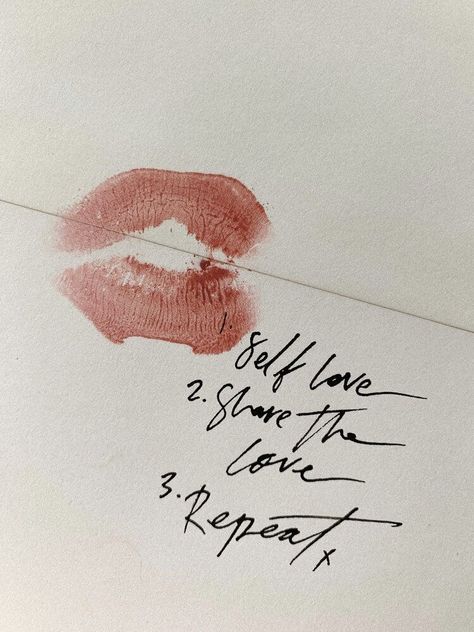 1. Self love
2. Share the
love
3. Repeat x